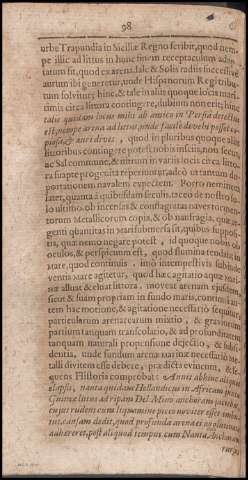 98
urbe Trapundia in Siciliæ Regno scribit, quod nem-
pe illic ad littus in hunc finem receptaculum adap-
tatum sit, quod ex arena, sale & Solis radiis
aurum ibi generetur, unde Hispanorum Regi tribu-
tum solvitur; hinc, & tale in aliis quoque locis mari-
timis circa littora contingere, dubium non erit; hinc
talis quidam locus mihi ab amico in Persia detectus
est, nempe arena ad littus, unde facile deveh posset
& auri dives, quod in pluribus quoque aliis
littoribus contingere potest nobis insciis, non secus
ac Sal commune, & nitrum in variis locis circa litto-
ra sua ponte prognata reperiuntur, adeò ut tantum de-
portationem navalem expectent. Porrò neminem
latet, quanta à quibusdam seculis, taceo de nostro
ultimo, ob incensas & conflagratas naves
torum Metallicorum copia, & ob naufragia, quæ
genti quantitas in Mari submersa sit, quibus
tis, quæ nemo negare potest, id quoque nobis ob
oculos, & perspicuum est, quod flumina tendant in
Mare, quod continuis, imò intempestivis subinde
ventis Mare agitetur, quod hac agitatio aquæ
ria alluat & eluat littora, moveat arenam
sicut & suam propriam in fundo maris, continuâ au-
tem hac motione, & agitatione necessariò sequatur
particularum arenacearum tritio, & graviorum
partium tanquam transcolatio, & ad profunditatem
tanquam naturali propensione dejectio, & subsi-
dentia, unde fundum arenæ marinæ necessariò me-
talli divitem esse debere, prædicta evincunt, &
quens Historia comprobat: Annis abhinc aliquot
elapsis, nauta quidam Hollandicus in Africam
Guineæ littus ad ripam Del Mino anchoram
cujus rudens cum liquamine piceo noviter esset
tus, casu sam dedit, quod profunda arena
adhæreret, post aliquod tempus cum Nauta Anchoram